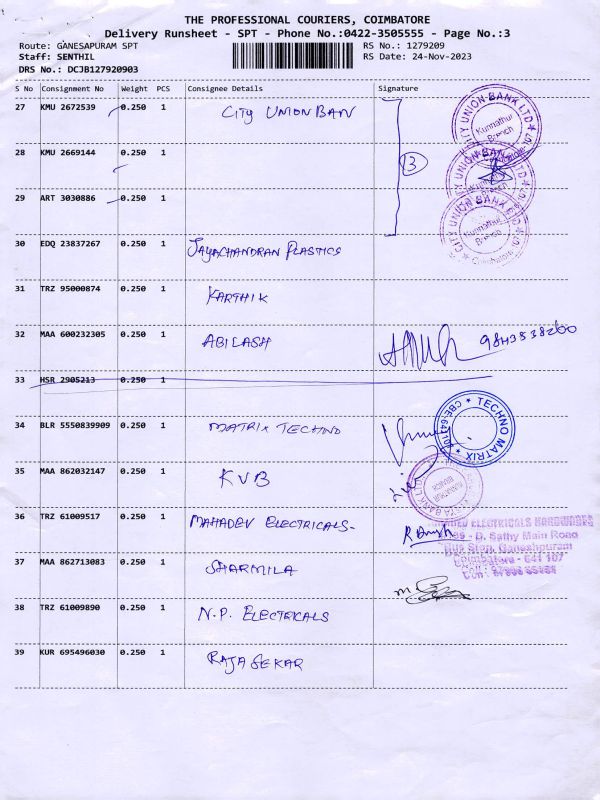 THE PROFESSIONAL COURIERS, COIMBATORE
Delivery Runsheet - SPT - Phone No.:0422-3505555 - Page No.:3
Route: GANESAPURAM SPT RS No.: 1279209
Staff: SENTHIL RS Date: 24-Nov-2023
DRS No.: DCJB127920903
S No Consignment No Weight PCS Consignee Details Signature
27 KMU 2672539 0.250 1 CITY UNION BAN
CITY UNION BANK LTD
Kunnathur
Branch
28 KMU 2669144 0.250 1 3
CITY UNION BANK LTD
29 ART 3030886 0.250 1
CITY UNION BANK LTD
Kunnathur
Branch
Coimbatore
30 EDQ 23837267 0.250 1 JAYACHANDRAN PLASTICS
31 TRZ 95000874 0.250 1 KARTHIK
32 MAA 600232305 0.250 1 ABILASH 9843538260
33 HSR 2905213 0.250 1
34 BLR 5550839909 0.250 1 MATRIX TECHNO
TECHNO MATRIX
35 MAA 862032147 0.250 1 KVB
36 TRZ 61009517 0.250 1 MAHADEV ELECTRICALS-
ELECTRICALS HARDWARES
D. Sathy Main Road
Bus Stop, Ganeshpuram
Coimbatore - 641 107
37 MAA 862713083 0.250 1 SHARMILA
38 TRZ 61009890 0.250 1 N.P. ELECTRICALS
39 KUR 695496030 0.250 1 RAJASEKAR